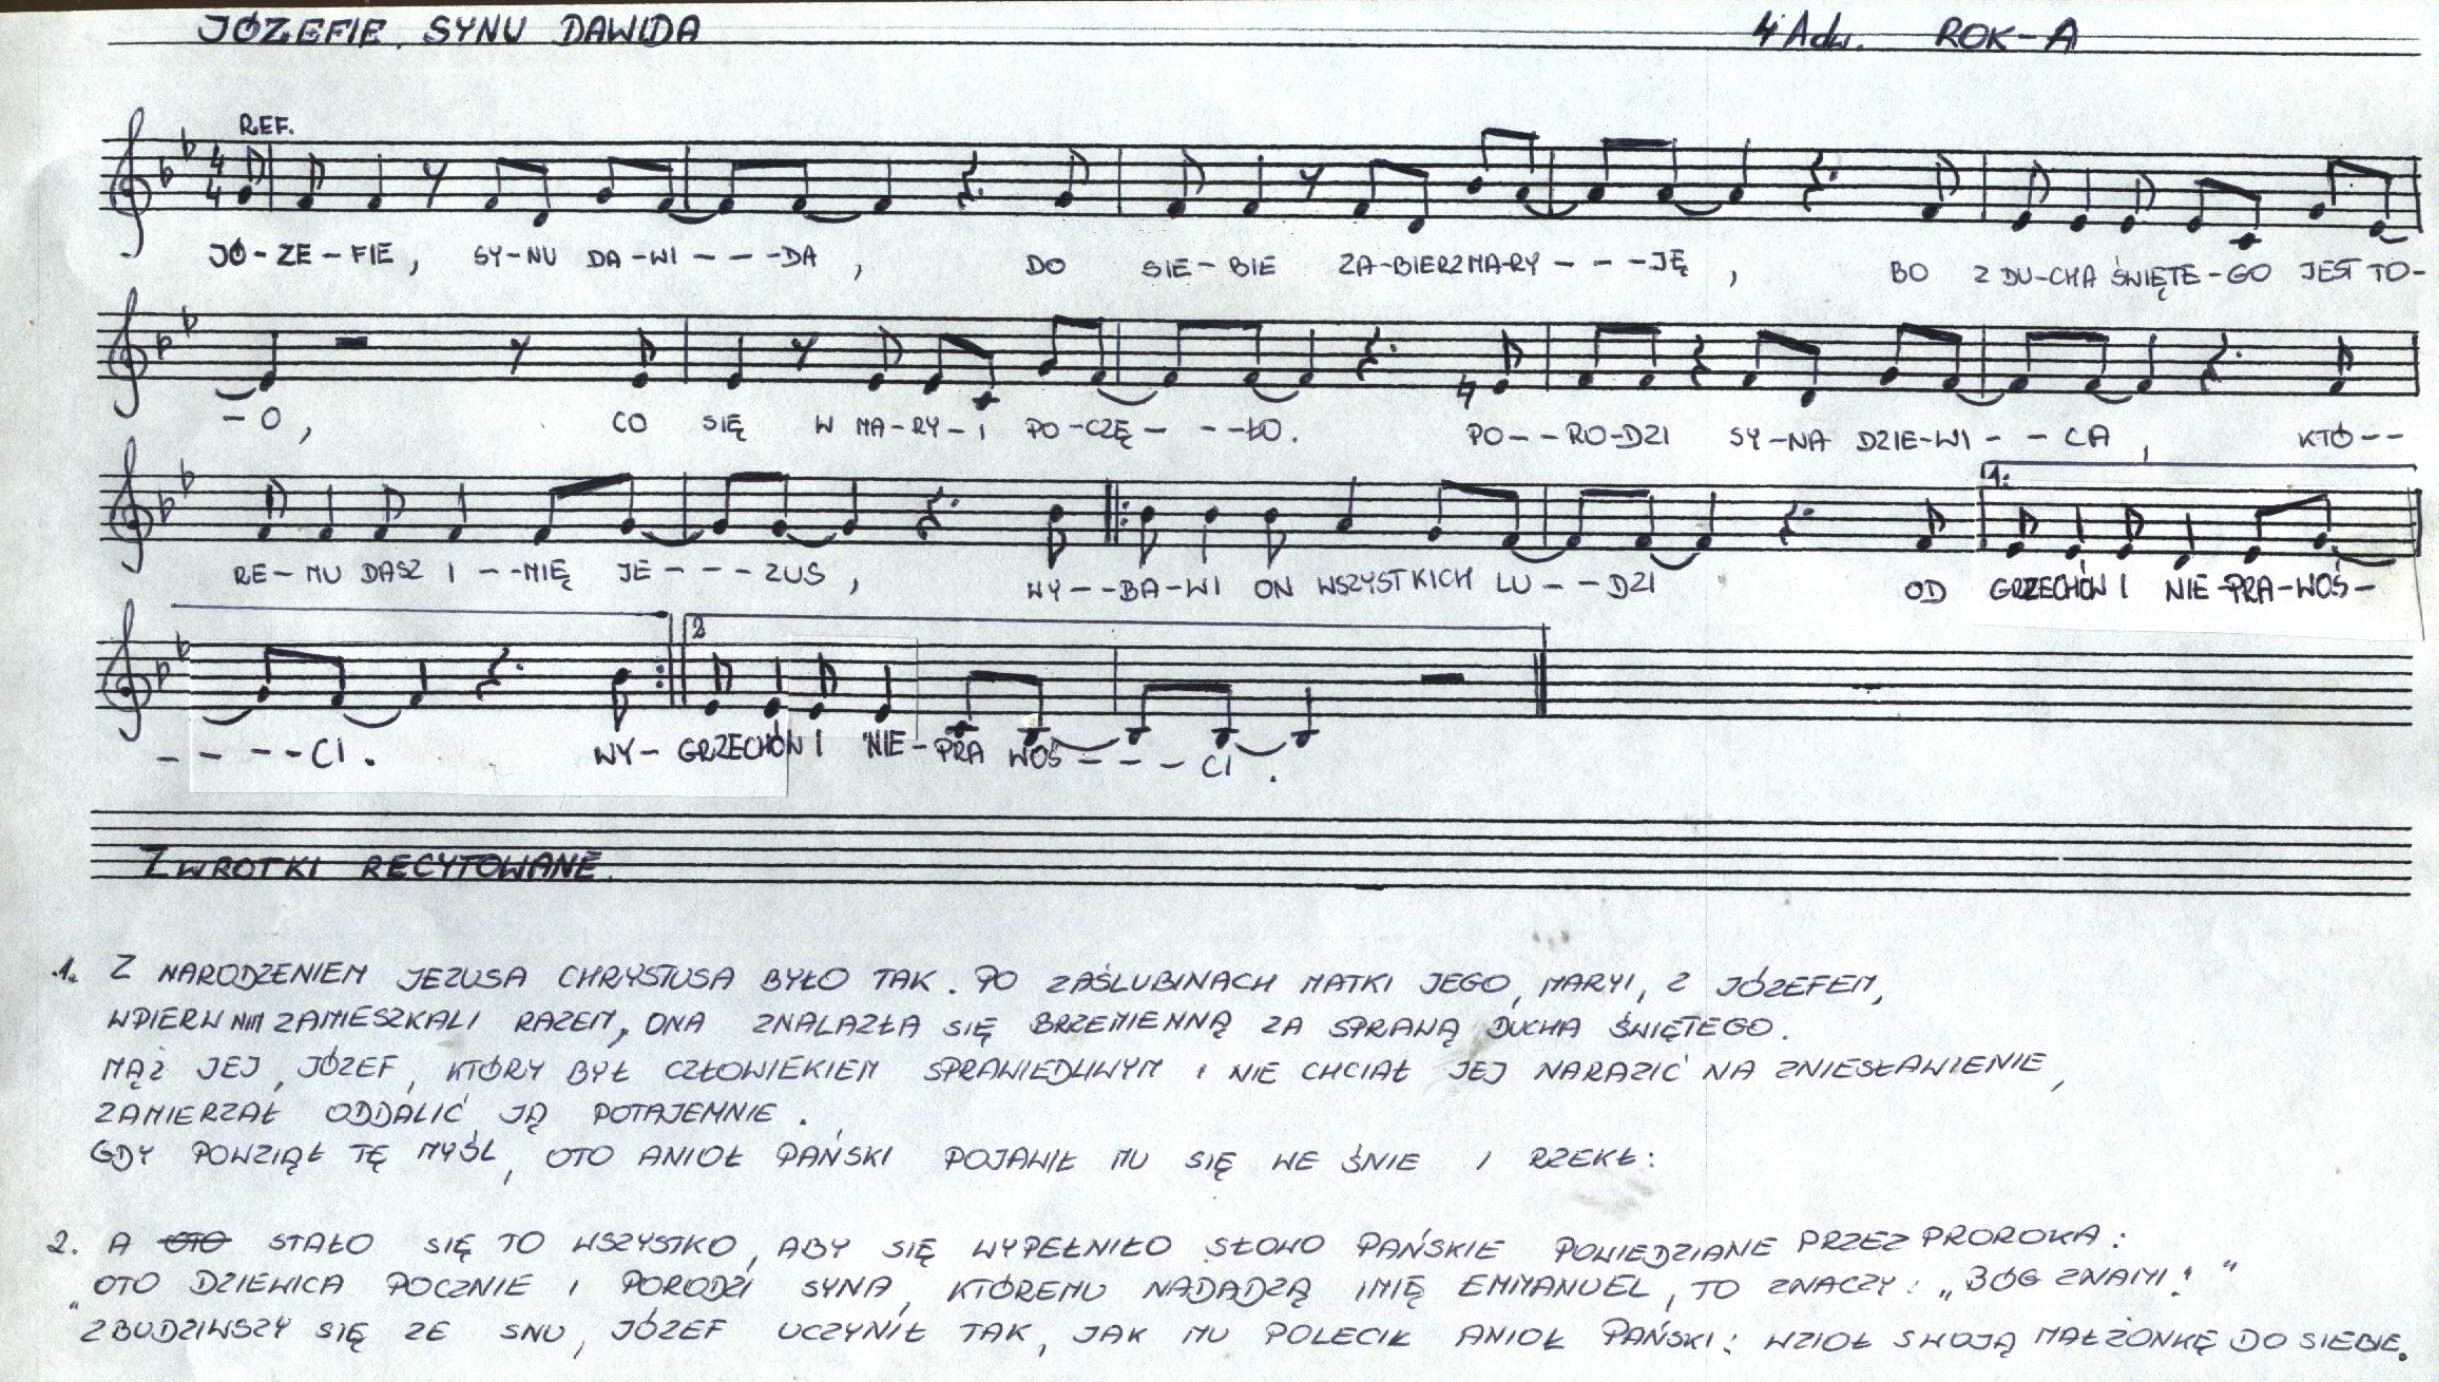 JÓZEFIE, SYNU DAWIDA 4 Adw. ROK-A
REF.
4
4
JÓ-ZE-FIE, SY-NU DA-WI---DA, DO SIE-BIE ZA-BIERZ MA-RY---JĘ, BO Z DU-CHA ŚWIĘTE-GO JEST TO-
-O, CO SIĘ W MA-RY-I PO-CZĘ---ŁO. PO--RO-DZI SY-NA DZIE-WI--CA, KTÓ--
1.
RE-MU DASZ I--MIĘ JE---ZUS, WY--BA-WI ON WSZYSTKICH LU--DZI OD GRZECHÓW I NIE-PRA-WOŚ-
2
----CI. WY- GRZECHÓW I NIE-PRA WOŚ---CI.
ZWROTKI RECYTOWANE.
1. Z NARODZENIEM JEZUSA CHRYSTUSA BYŁO TAK. PO ZAŚLUBINACH MATKI JEGO, MARYI, Z JÓZEFEM,
WPIERW NIM ZAMIESZKALI RAZEM, ONA ZNALAZŁA SIĘ BRZEMIENNĄ ZA SPRAWĄ DUCHA ŚWIĘTEGO.
MĄŻ JEJ, JÓZEF, KTÓRY BYŁ CZŁOWIEKIEM SPRAWIEDLIWYM I NIE CHCIAŁ JEJ NARAZIĆ NA ZNIESŁAWIENIE,
ZAMIERZAŁ ODDALIĆ JĄ POTAJEMNIE.
GDY POWZIĄŁ TĘ MYŚL, OTO ANIOŁ PAŃSKI POJAWIŁ MU SIĘ WE ŚNIE I RZEKŁ:
2. A OTO STAŁO SIĘ TO WSZYSTKO, ABY SIĘ WYPEŁNIŁO SŁOWO PAŃSKIE POWIEDZIANE PRZEZ PROROKA:
"OTO DZIEWICA POCZNIE I PORODZI SYNA, KTÓREMU NADADZĄ IMIĘ EMMANUEL, TO ZNACZY: „BÓG Z NAMI!"
ZBUDZIWSZY SIĘ ZE SNU, JÓZEF UCZYNIŁ TAK, JAK MU POLECIŁ ANIOŁ PAŃSKI: WZIOŁ SWOJĄ MAŁŻONKĘ DO SIEBIE.